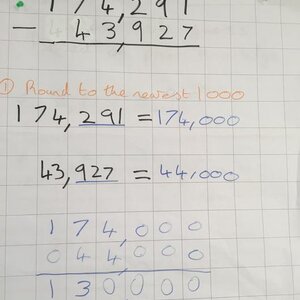 174,291
- 43,927
① Round to the nearest 1000
174,291 = 174,000
43,927 = 44,000
174,000
044,000
130000